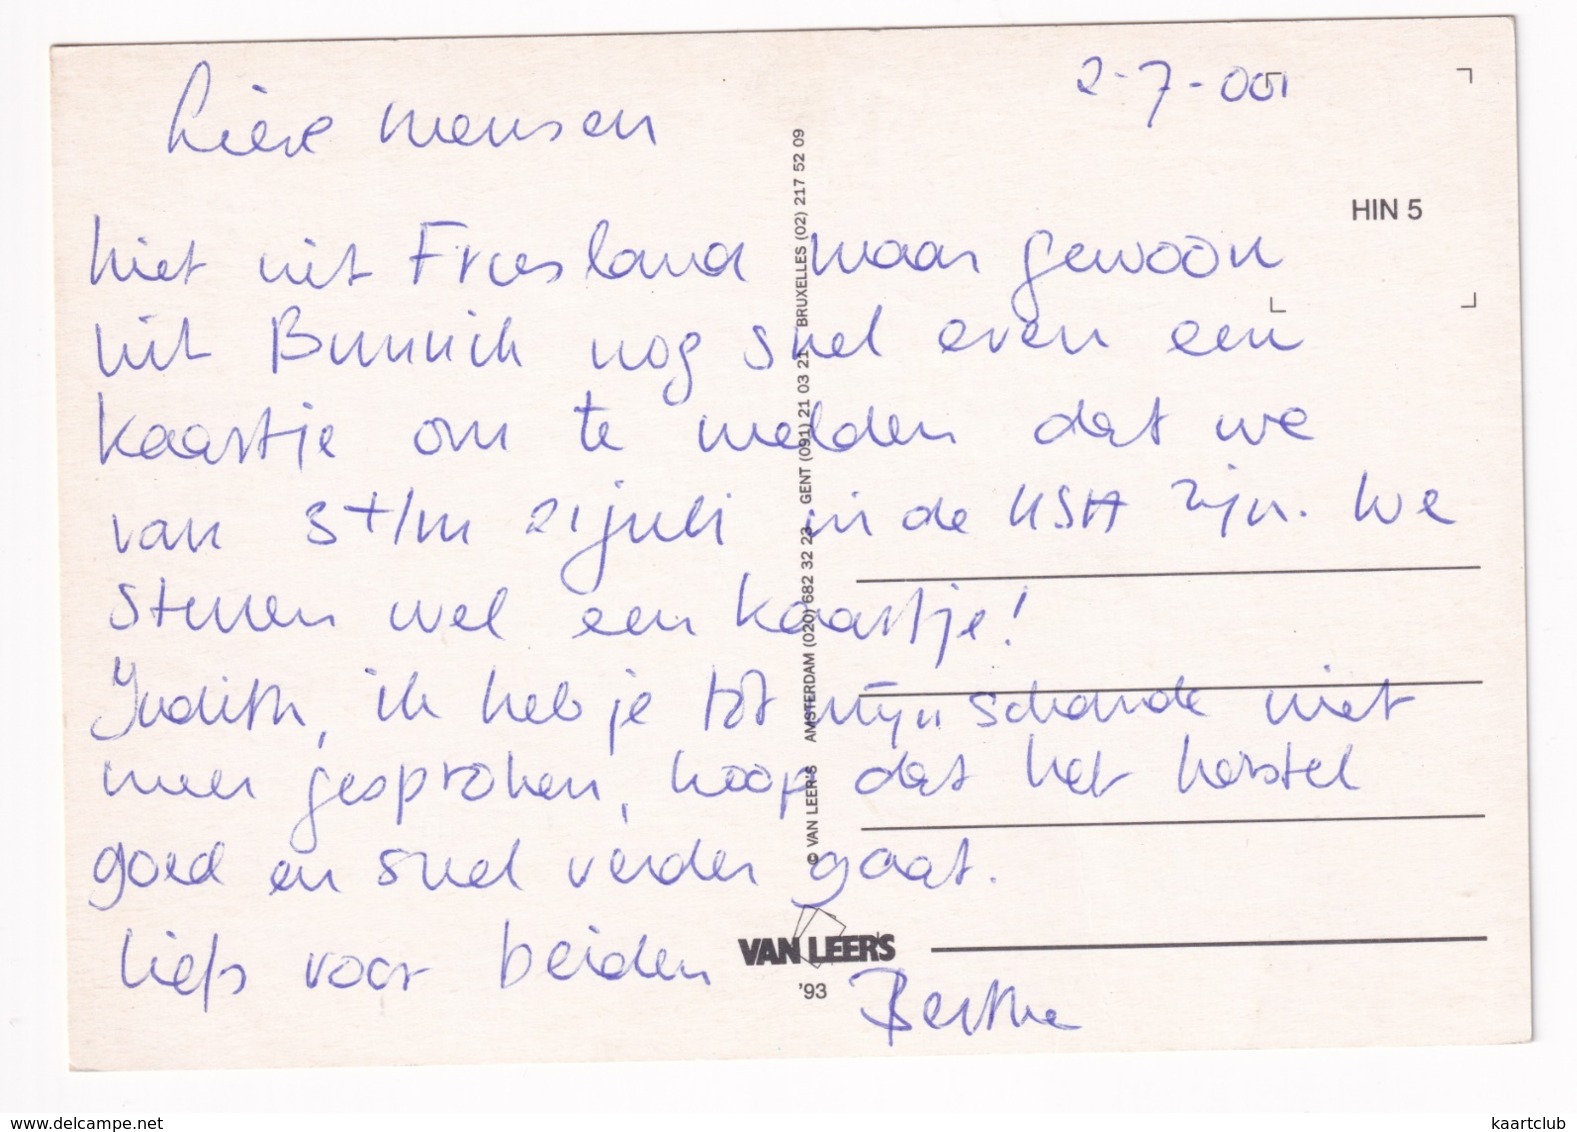 2-7-00
HIN 5
Lieve mensen
Niet uit Friesland maar gewoon
uit Bunnik nog snel even een
kaartje om te melden dat we
van 3 t/m 21 juli in de USA zijn. We
sturen wel een kaartje!
Judith, ik heb je tot mijn schande niet
meer gesproken, hoop dat het herstel
goed en snel verder gaat.
liefs voor beiden
Berthe
© VAN LEER'S AMSTERDAM (020) 682 32 23 GENT (091) 21 03 21 BRUXELLES (02) 217 52 09
VAN LEER'S
'93
https://www.delcampe.net
kaartclub